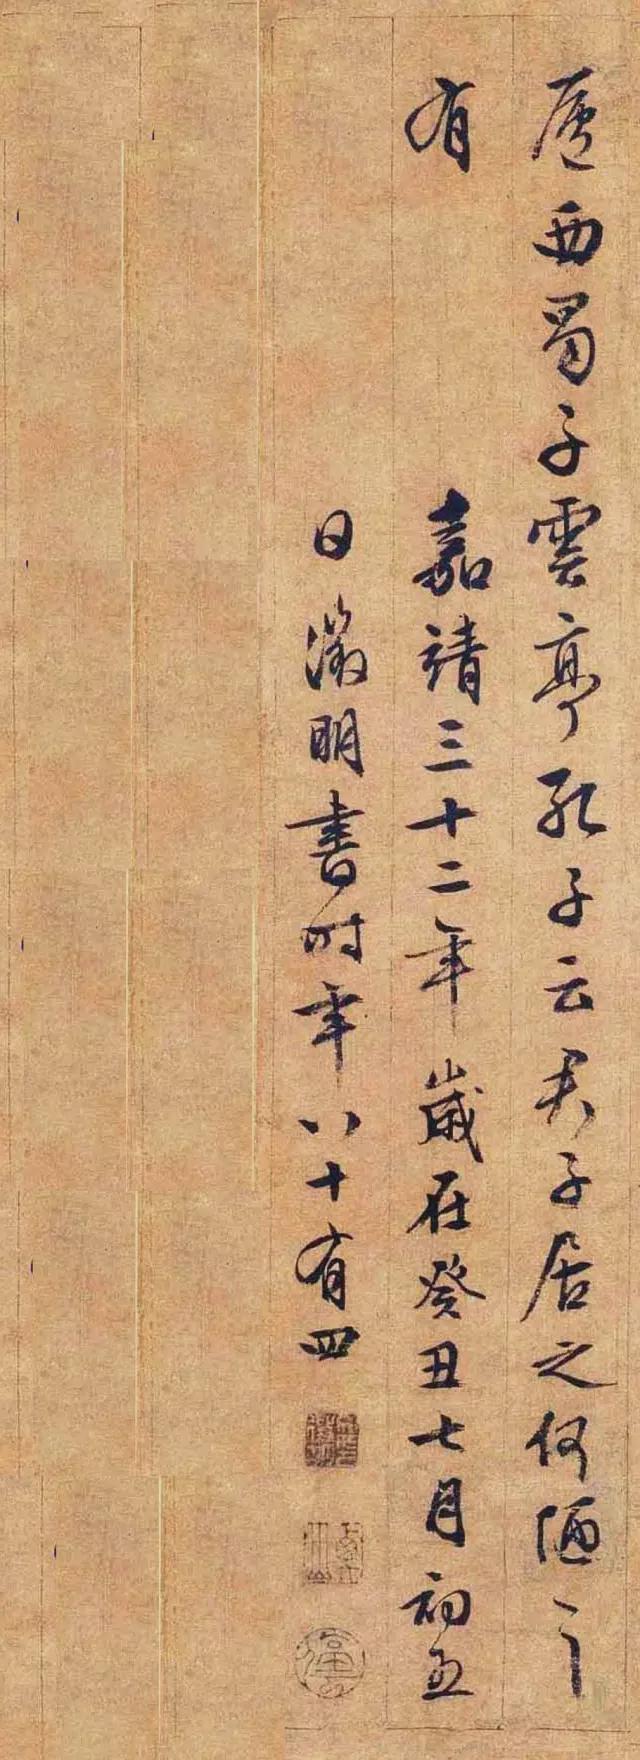 廬西蜀子雲亭孔子云君子居之何陋之
有
嘉靖三十二年歲在癸丑七月初五
日徵明書時年八十有四